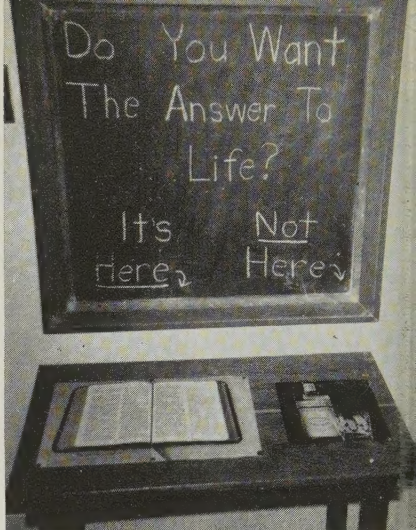 Do You Want
The Answer To
Life?
It's
Here
Not
Here